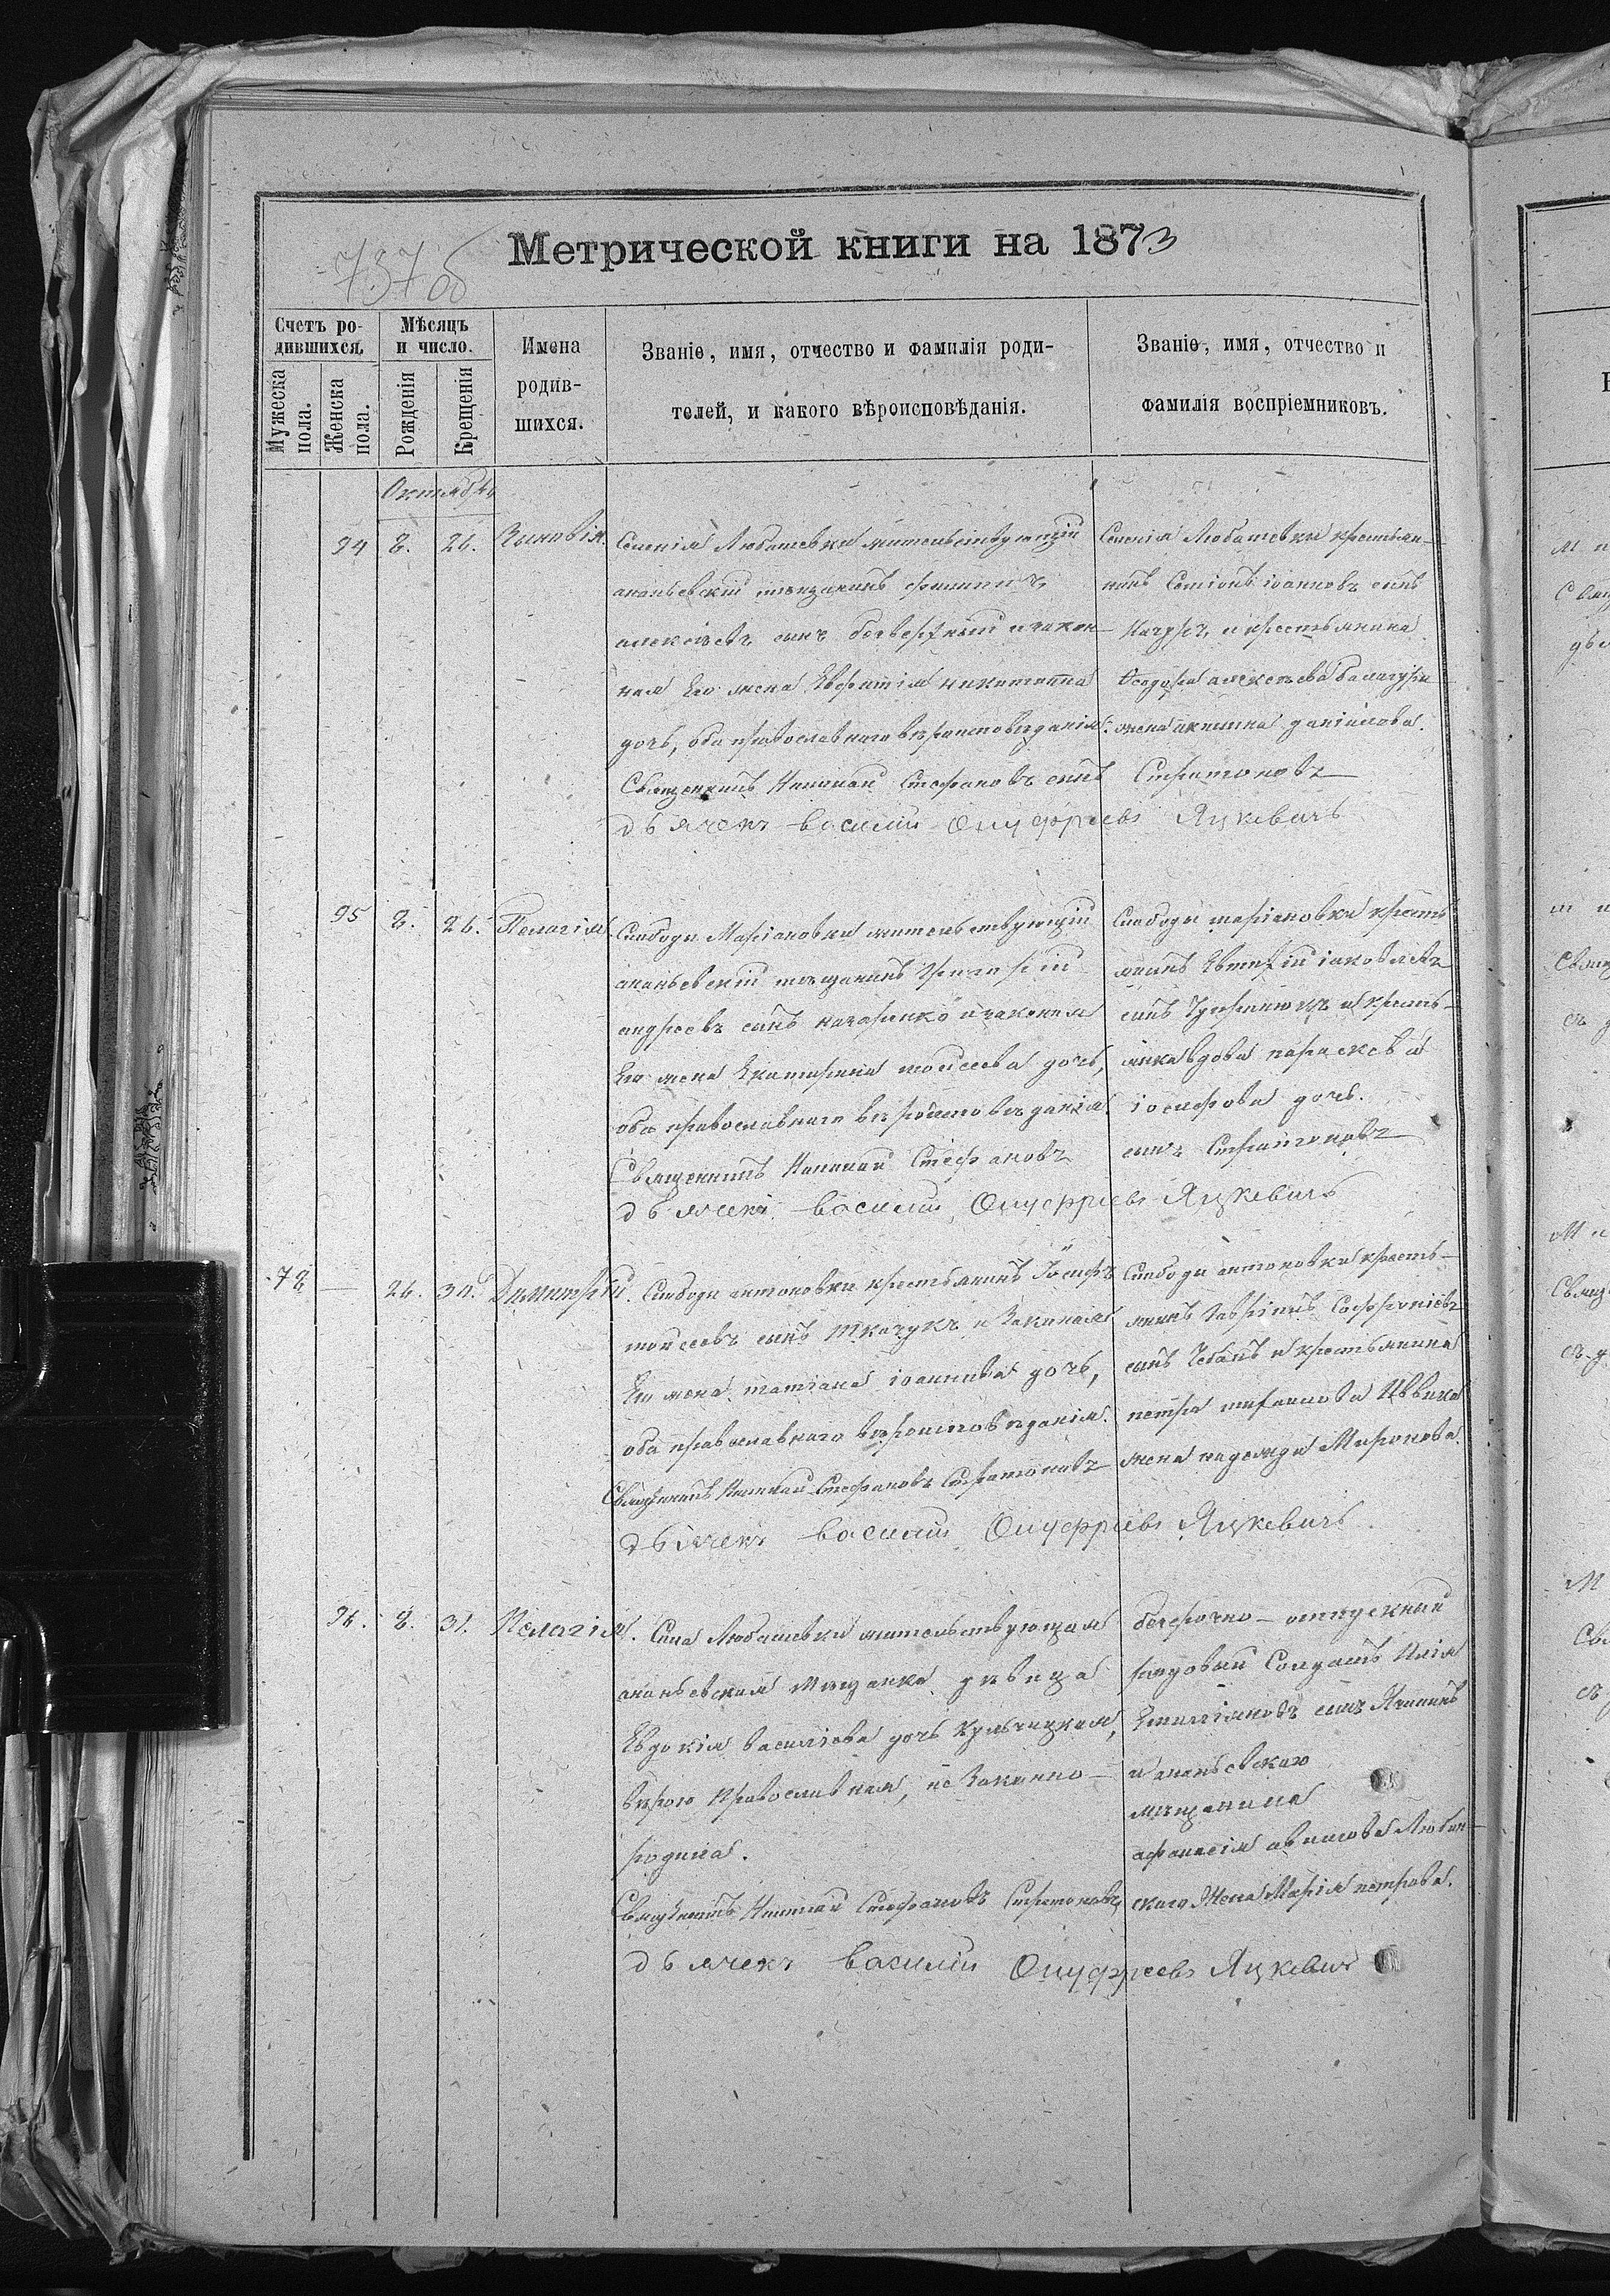 737 об
Метрической книги на 1873
Счетъ родившихся.
Мѣсяцъ и число.
Имена родившихся.
Званіе, имя, отчество и фамилія родителей, и какого вѣроисповѣданія.
Званіе, имя, отчество и фамилія воспріемниковъ.
Мужеска пола.
Женска пола.
Рожденія
Крещенія
Октябрь
94 8. 26. Зиновія.
Селенія Любашевки жительствующій
ананьевскій мѣщанинъ филиппъ
алексѣевъ сынъ и закон-
ная Его жена Евфимія никитина
дочь, оба православнаго вѣроисповѣданія.
Селенія Любашевки крестья-
нинъ Семіонъ іоанновъ сынъ
и крестьянина
Ѳеодора алексѣева
жена акилина даніилова.
Священникъ Николай Стефановъ сынъ Стратоновъ
дьячекъ василій Онуфріевъ Яцкевичъ
95 8. 26. Пелагія.
Слободы Маріановки жительствующій
ананьевскій мѣщанинъ Григорій
андреевъ сынъ назаренко и законная
Его жена Екатерина моисеева дочь,
оба православнаго вѣроисповѣданія.
Слободы маріановки кресть-
янинъ Евтихій іаковлевъ
сынъ и кресть-
янка вдова параскева
іосифова дочь.
Священникъ Николай Стефановъ сынъ Стратоновъ
дьячекъ василій Онуфріевъ Яцкевичъ
78 — 26. 30. Димитрій.
Слободы антоновки крестьянинъ Іосифъ
моисеевъ сынъ Ткачукъ и Законная
Его жена татіана іоаннова дочь,
оба православнаго вѣроисповѣданія.
Слободы антоновки кресть-
янинъ Гавріилъ Софроніевъ
сынъ Чебанъ и крестьянина
петра
жена надежда Миронова.
Священникъ Николай Стефановъ Стратоновъ
дьячекъ василій Онуфріевъ Яцкевичъ
96. 8. 31. Пелагія.
Села Любашевки жительствующая
ананьевская Мѣщанка дѣвица
Евдокія василіева дочь Кульчицкая,
вѣрою Православная, не Законно-
родила.
безсрочно-отпускный
рядовый Солдатъ Илія
Емиліановъ сынъ
и ананьевскаго
мѣщанина
афанасія
скаго Жена Марія петрова.
Священникъ Николай Стефановъ Стратоновъ
дьячекъ василій Онуфріевъ Яцкевичъ